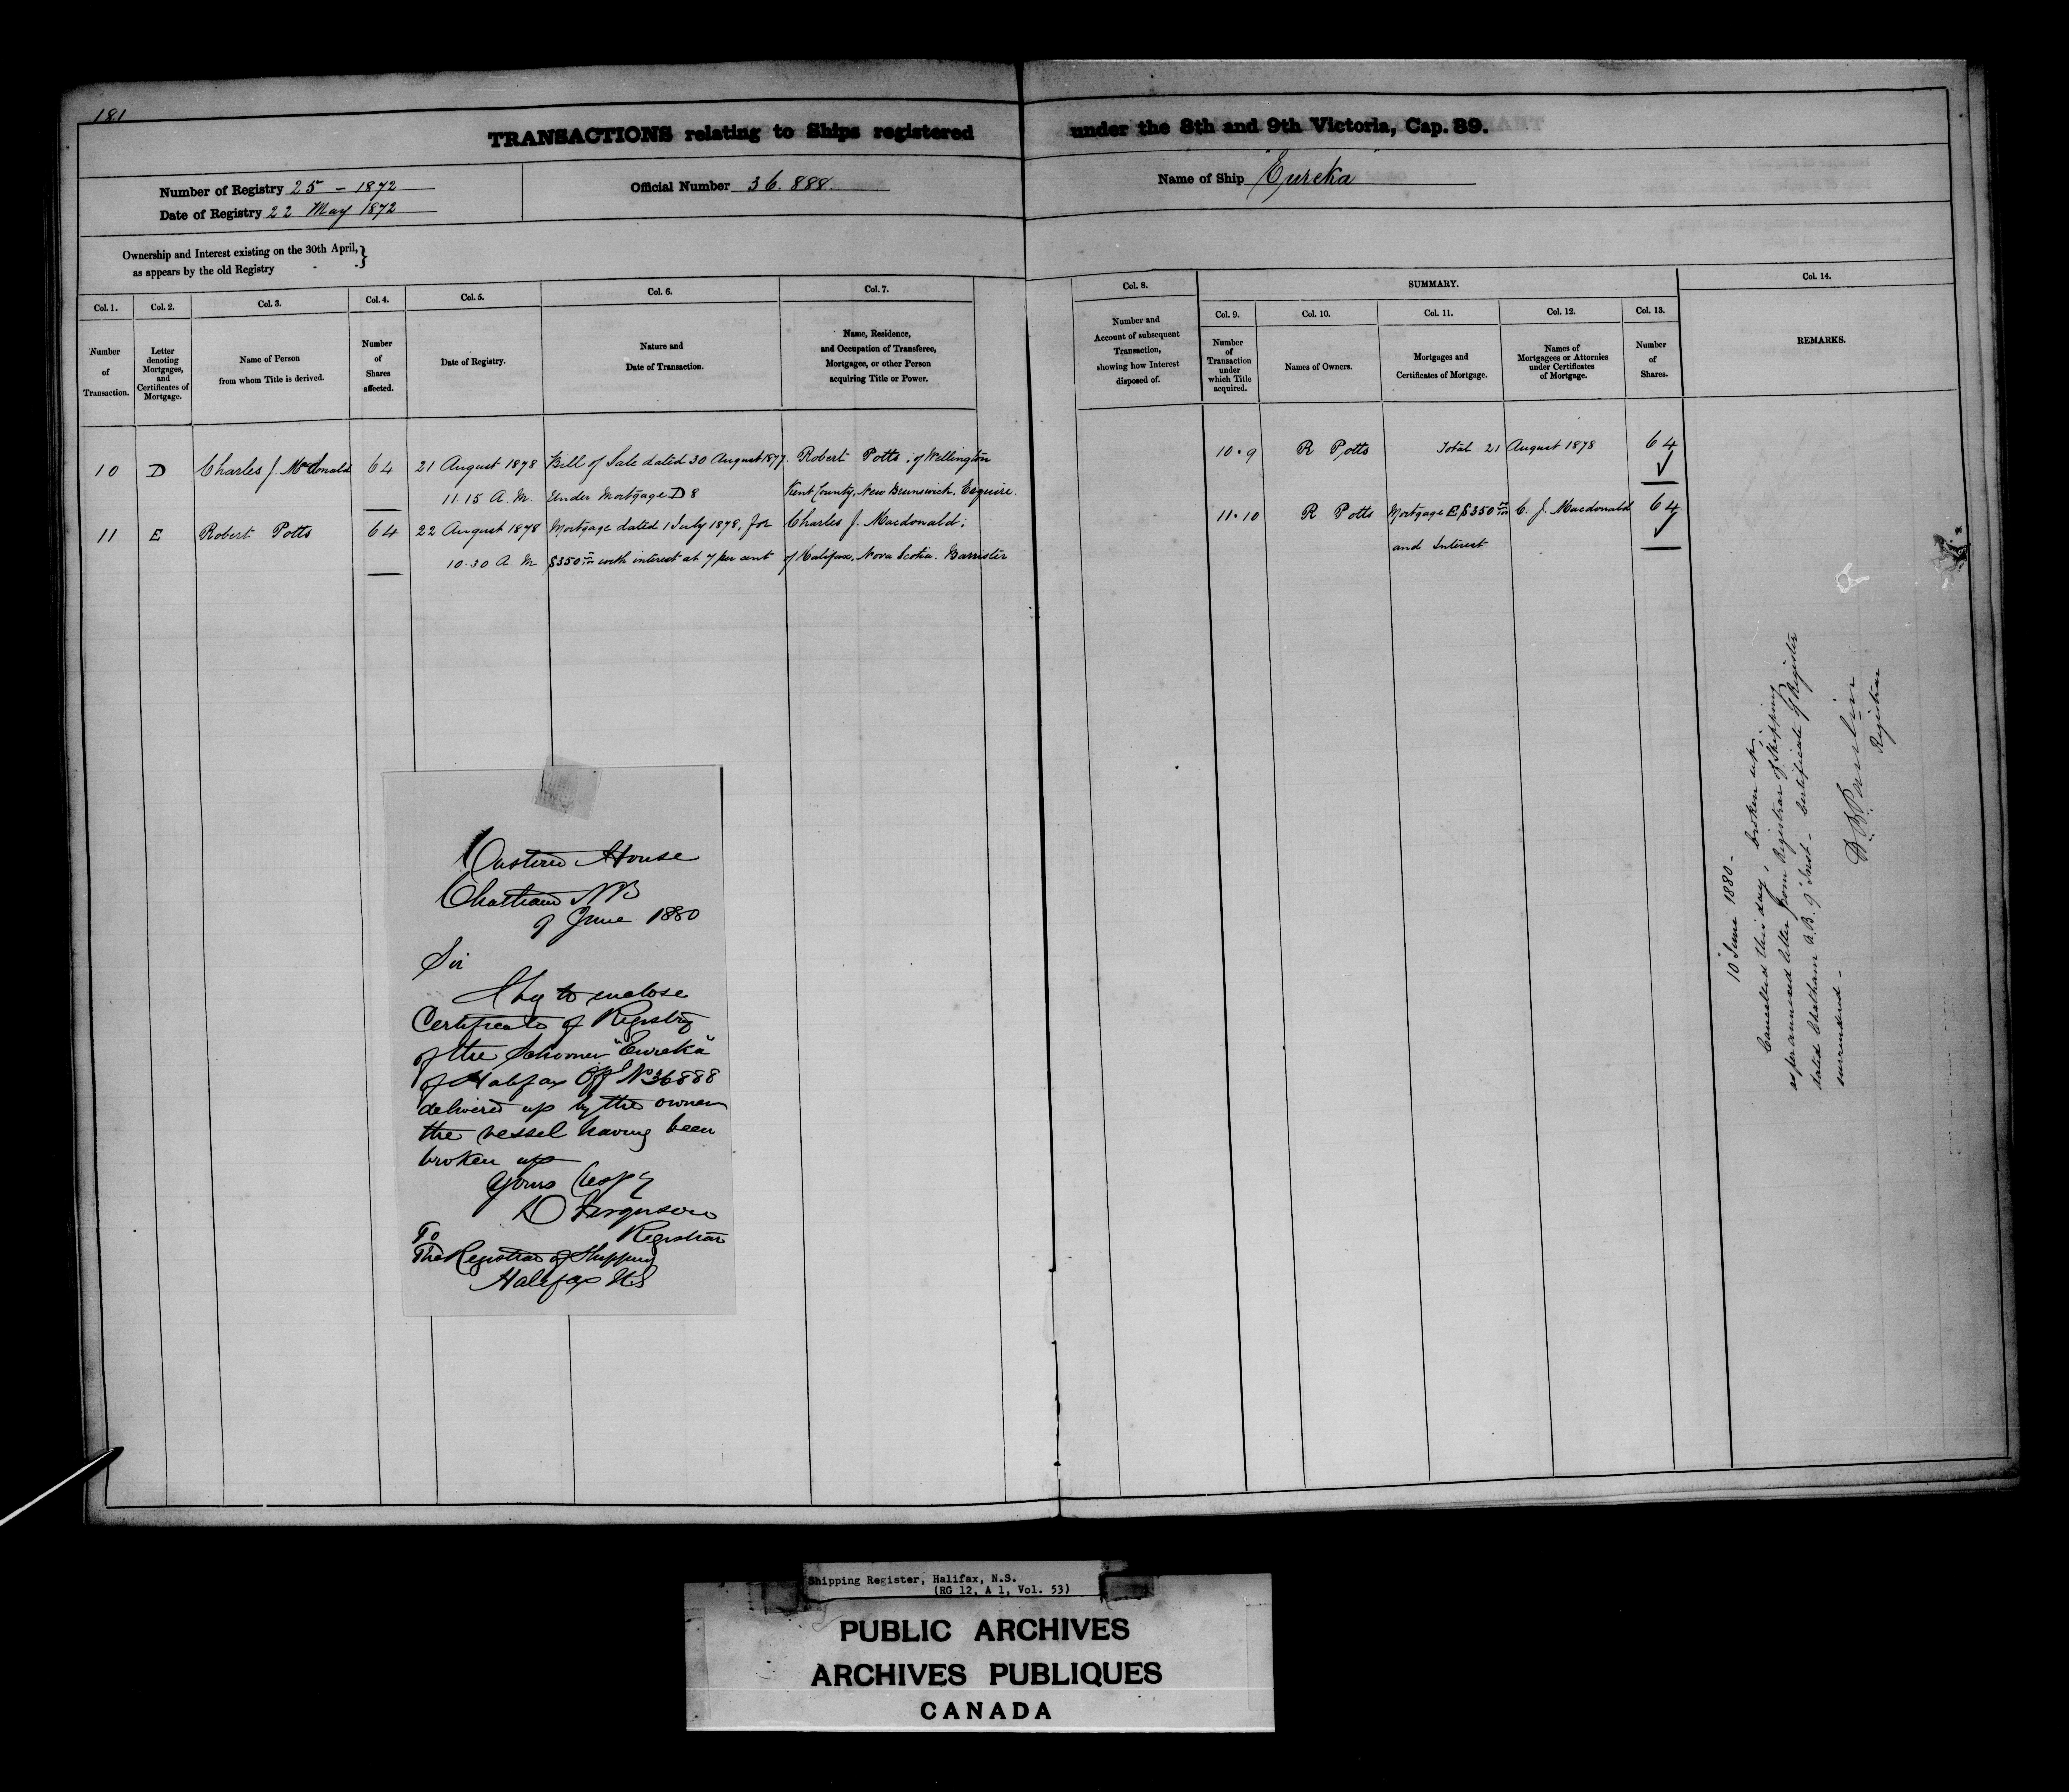 181
TRANSACTIONS relating to Ships registered under the 8th and 9th Victoria, Cap. 89.
Number of Registry 25 - 1872
Date of Registry 22 May 1872
Official Number 36.888.
Name of Ship "Eureka"
Ownership and Interest existing on the 30th April,}
as appears by the old Registry
Col. 1.
Number
of
Transaction.
Col. 2.
Letter
denoting
Mortgages,
and
Certificates of
Mortgage.
Col. 3.
Name of Person
from whom Title is derived.
Col. 4.
Number
of
Shares
affected.
Col. 5.
Date of Registry.
Col. 6.
Nature and
Date of Transaction.
Col. 7.
Name, Residence,
and Occupation of Transferee,
Mortgagee, or other Person
acquiring Title or Power.
Col. 8.
Number and
Account of subsequent
Transaction,
showing how Interest
disposed of.
SUMMARY.
Col. 9.
Number
of
Transaction
under
which Title
acquired.
Col. 10.
Names of Owners.
Col. 11.
Mortgages and
Certificates of Mortgage.
Col. 12.
Names of
Mortgagees or Attornies
under Certificates
of Mortgage.
Col. 13.
Number
of
Shares.
Col. 14.
REMARKS.
10 D Charles J. McDonald 64 21 August 1878 Bill of Sale dated 30 August 1877. Robert Potts; of Wellington
11.15 A.M. Under Mortgage D 8 Kent County, New Brunswick, Esquire.
11 E Robert Potts 64 22 August 1878 Mortgage dated 1 July 1878, for Charles J. Macdonald;
10.30 A M $350 with interest at 7 per cent of Halifax, Nova Scotia. Barrister
10.9 R Potts Total 21 August 1878 64
11.10 R Potts Mortgage E, $350 C. J. Macdonald 64
and Interest
10 June 1880 -
Cancelled this day, broken up;
as per annexed letter from Registrar of Shipping
dated Chatham N.B. 9" Inst - Certificate of Register
surrendered -
Registrar
Custom House
Chatham NB
9 June 1880
Sir
I beg to enclose
Certificate of Registry
of the Schooner "Eureka"
of Halifax Offl No 36888
delivered up by the owner
the vessel having been
broken up
Yours Respy
D Ferguson
Registrar
To
The Registrar of Shipping
Halifax NS
Shipping Register, Halifax, N.S.
(RG 12, A 1, Vol. 53)
PUBLIC ARCHIVES
ARCHIVES PUBLIQUES
CANADA